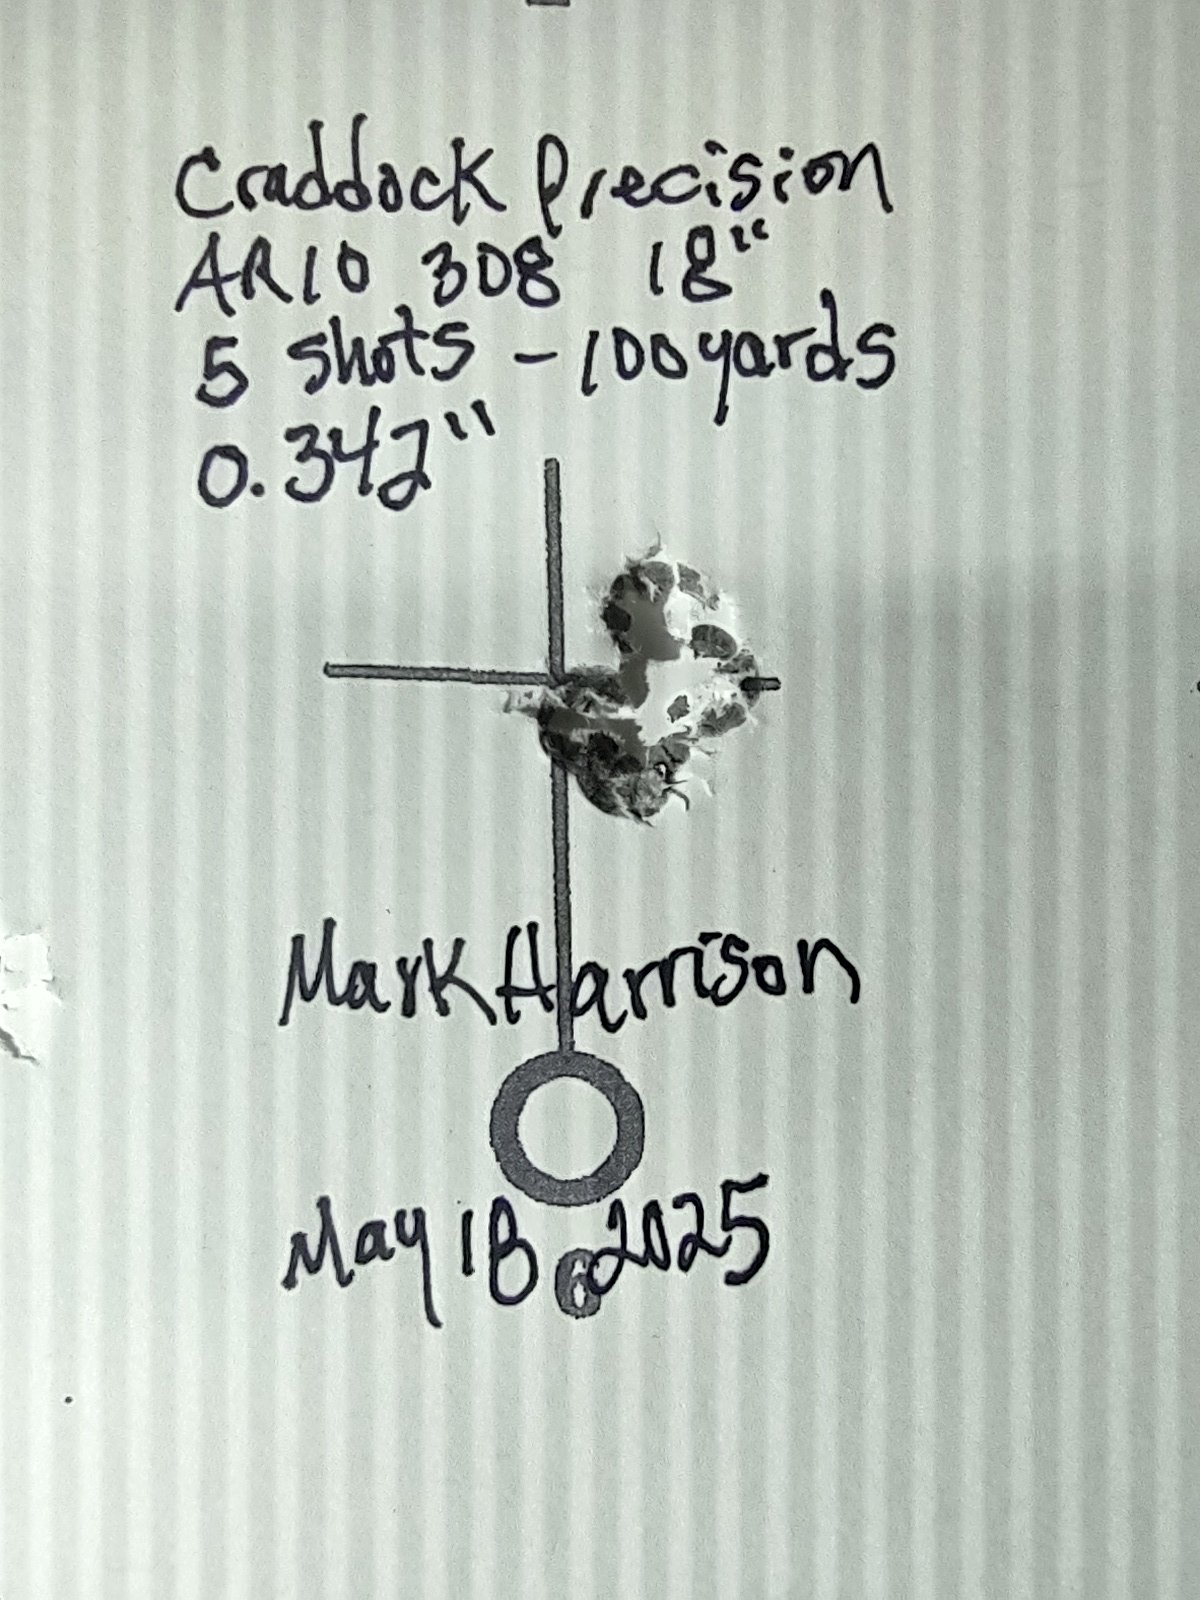 Craddock Precision
AR10 308 18"
5 shots - 100 yards
0.342"
Mark Harrison
May 18, 2025
6